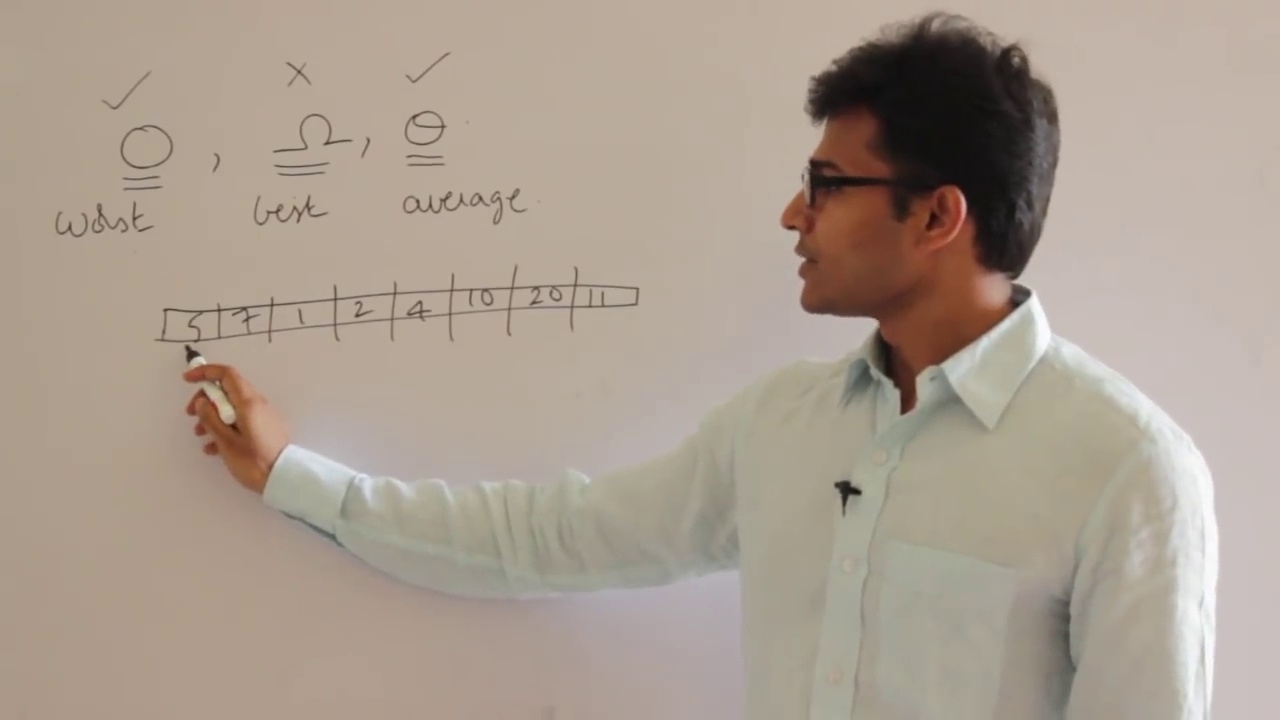 ✓ × ✓
O , Ω , Θ
worst best average
5 7 1 2 4 10 20 11